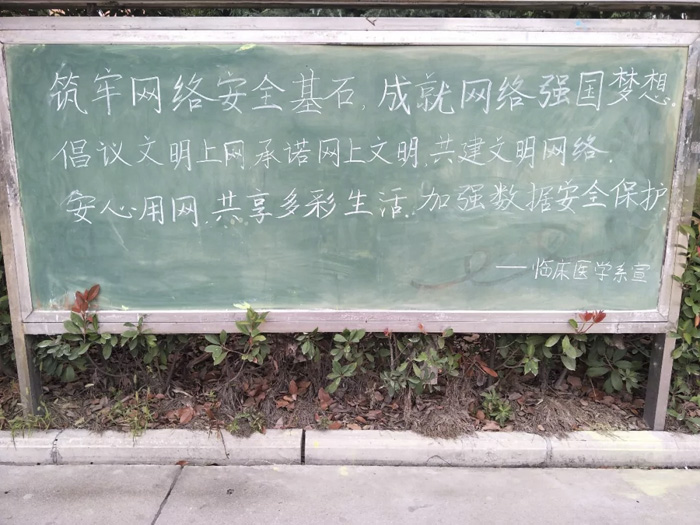 筑牢网络安全基石,成就网络强国梦想.
倡议文明上网,承诺网上文明,共建文明网络.
安心用网.共享多彩生活.加强数据安全保护.
——临床医学系宣